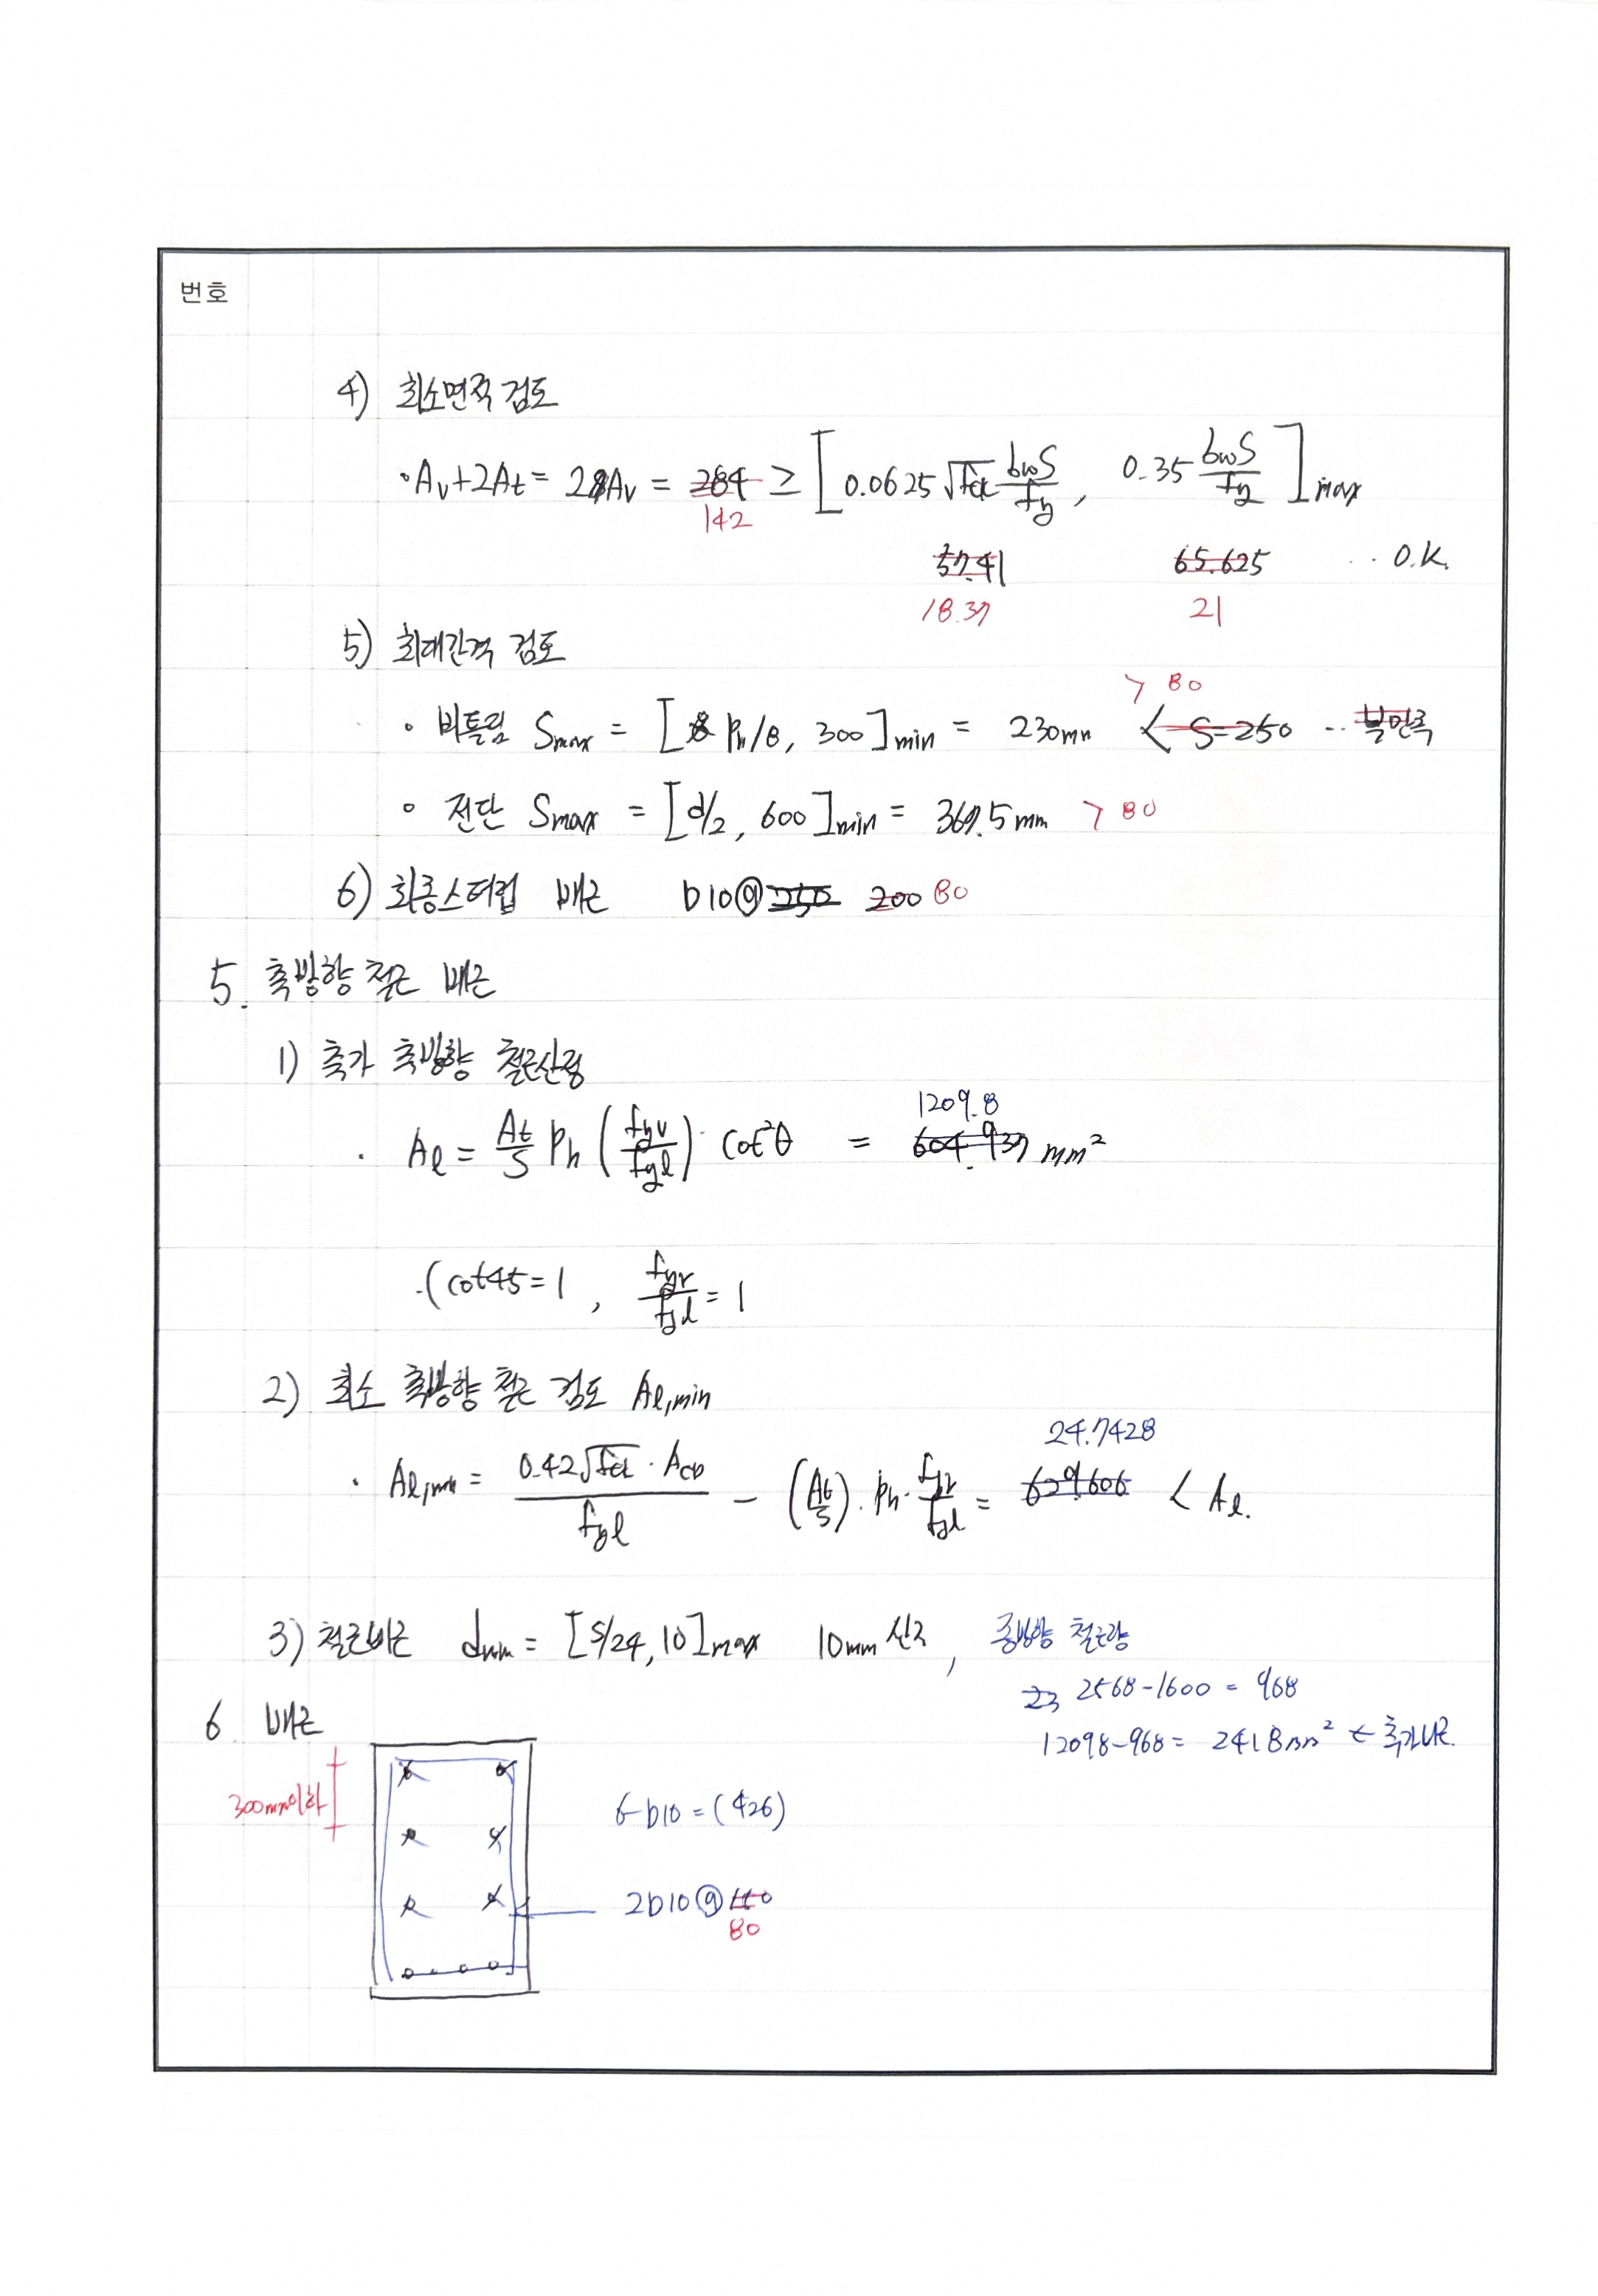 번호
4) 최소면적 검토
• Av+2At = 2Av = 284 ≥ [0.0625√fck bwS/fy, 0.35 bwS/fy]max
142
37.41 65.625 ‥ O.K.
18.37 21
5) 최대간격 검토
> 80
• 비틀림 Smax = [Ph/8, 300]min = 230mm < S=250 ‥ 불만족
• 전단 Smax = [d/2, 600]min = 369.5mm > 80
6) 최종스터럽 배근 D10@250 200 80
5. 축방향 철근 배근
1) 추가 축방향 철근산정
1209.8
• Aℓ = At/S Ph (fyv/fyℓ)· cot²θ = 604.937 mm²
(cot45=1, fyv/fyℓ = 1
2) 최소 축방향 철근 검토 Aℓ,min
24.7428
• Aℓ,min = 0.42√fck · Acp / fyℓ − (At/S)· Ph · fyv/fyℓ = 629.606 < Aℓ.
3) 철근배근 dmin = [S/24, 10]max 10mm 신규, 종방향 철근량
2568-1600 = 968
6 배근
12098-968 = 241.8mm² ← 추가배근.
300mm이하
6-D10 = (426)
2D10@110
80